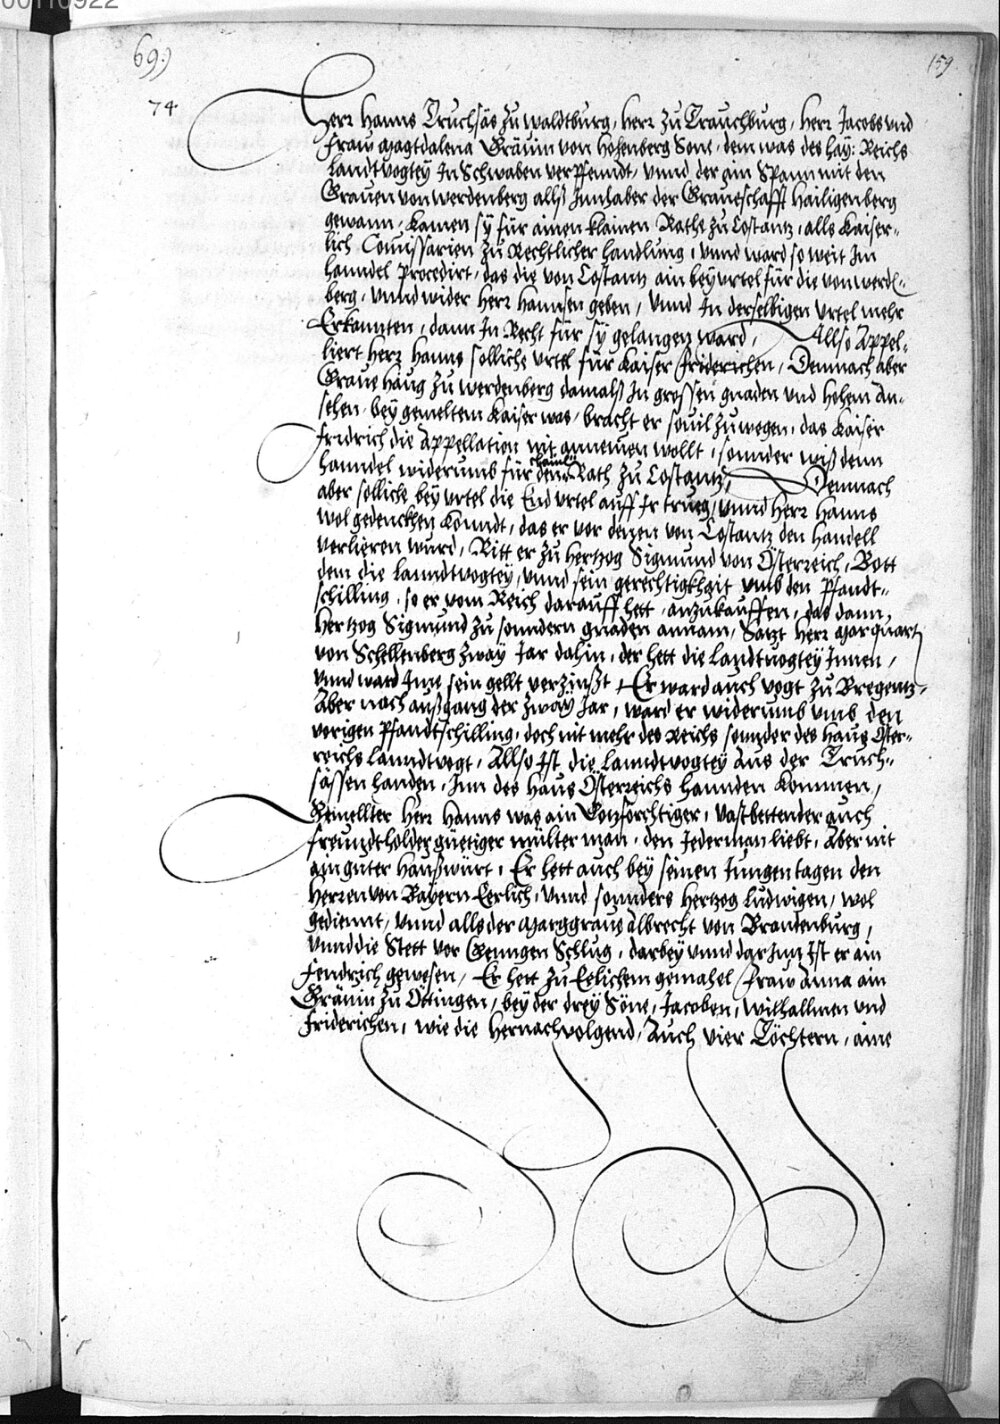 00110922
69.)
159.
74.
Herr Hanns Truchsäs zu Waldtburg, Herr zu Trauchburg, Herr Jacobs vnd
Fraw Magtdalena Gräuin von Hohenberg Sone, dem was des Hay: Reichs
Landtvogtey In Schwaben verpfenndt, vnnd der ain Spann mit den
Grauen von Werdenberg allß Innhaber der Graueschafft Hailigenberg
gewann, Kamen sy für ainen klainen Rathe zu Costantz, alls Kaiser-
lich Comissarien zu Rechtlicher handlung, vnnd ward so weit Im
hanndel procedirt, das die von Costantz ain beyvrtel für die von werd-
berg, vnnd wider Herr Hannsen geben, vnnd In derselbigen vrtel mehr
Erkannten, dann In Recht für sy gelangen ward, Allso Appel-
liert Herr Hanns solliche vrtel für Kaiser Friderichen, Demnach aber
Graue Haug zu Werdenberg damalß In grossen gnaden vnd hohem An-
sehen bey gemeltem Kaiser was, bracht er souil zuwegen, das Kaiser
Fridrich die Appellation nit annemen wollt, sonnder wiß denn
hanndel widerumb für den klainen Rath zu Costantz, Demnach
aber solliche beyvrtel die Endvrtel auff Ir trueg, vnnd Herr Hanns
wol gedencken konndt, das er vor denen von Costantz den handell
verlieren wurd, Ritt er zu Hertzog Sigmund von Österreich, Bott
dem die Lanndtvogtey, vnnd sein gerechtigkhait vmb den Pfandt-
schilling, so er vom Reich darauff hett, anzukauffen, das dann
Hertzog Sigmund zu sonndern gnaden annam, Satzt Herr Marquart
von Schellenberg zway Jar dahin, der hett die Landtvogtey Innen,
vnnd ward Im sein gellt verzinßt, Er ward auch vogt zu Bregentz,
Aber nach außgang der zway Jar, ward er widerumb vmb den
vorigen Pfandtschilling, doch nit mehr des Reichs sonnder des Haus Öster-
reichs Lanndtvogt, Allso Ist die Lanndtvogtey Aus der Truch-
sässen handen, Inn des Haus Österreichs hannden kommen,
Gemellter Herr Hanns was ain Gotzforchtiger, vast bettender auch
freundtholder güetiger milter man, den Jederman liebt, Aber nit
ain guter Haußwürt, Er hett auch bey seinen Jungen tagen den
Herren von Bayern Eerlich, vnnd sonnders Hertzog Ludwigen, wol
gediennt, vnnd alls der Marggraue Albrecht von Brandenburg,
vnnd die Stett vor Gemgen Schlug, darbey vnnd darInn Ist er ain
Fendrich gewesen, Er hett zu Eelichem gemahel Fraw Anna ain
Gräuin zu Öttingen, bey der drey Söne, Jacoben, Wilhallmen vnd
Friderichen, wie die hernachvolgend, Auch vier Töchtern, aine